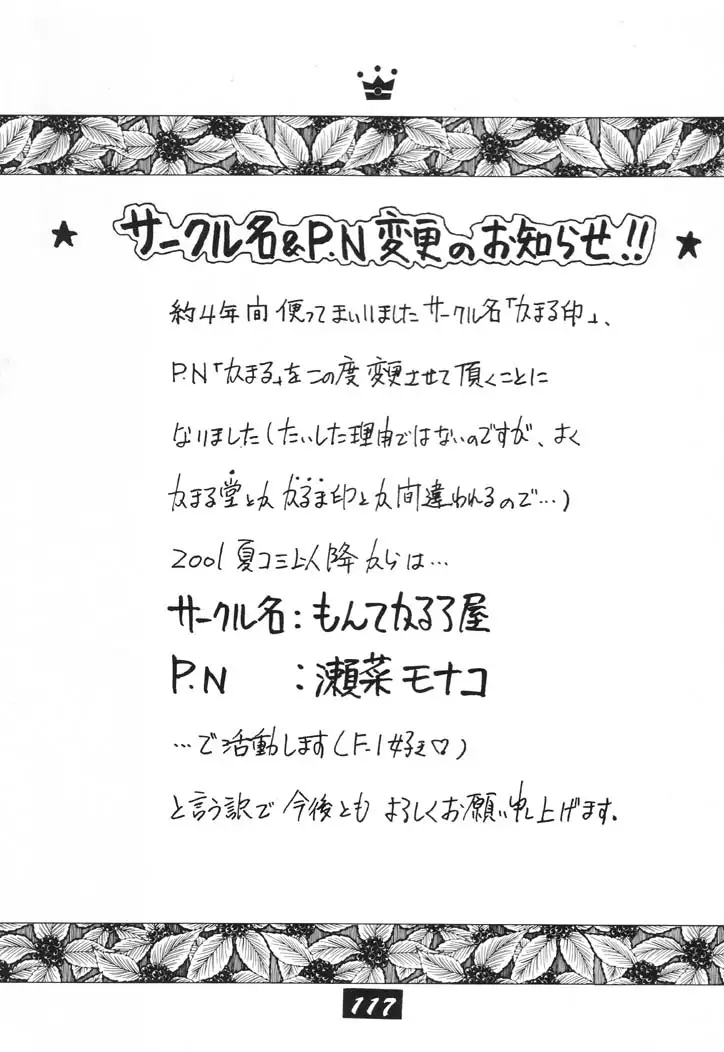 ★ サークル名&P.N変更のお知らせ!! ★
約4年間使ってまいりましたサークル名「かまる印」、
P.N「かまる」をこの度変更させて頂くことに
なりました(たいした理由ではないのですが、よく
かまる堂とか かるま印とか間違われるので…)
2001夏コミ以降からは…
サークル名:もんてかるろ屋
P.N :瀬菜モナコ
…で活動します(F-1好き♡)
と言う訳で今後とも よろしくお願い申し上げます.
117